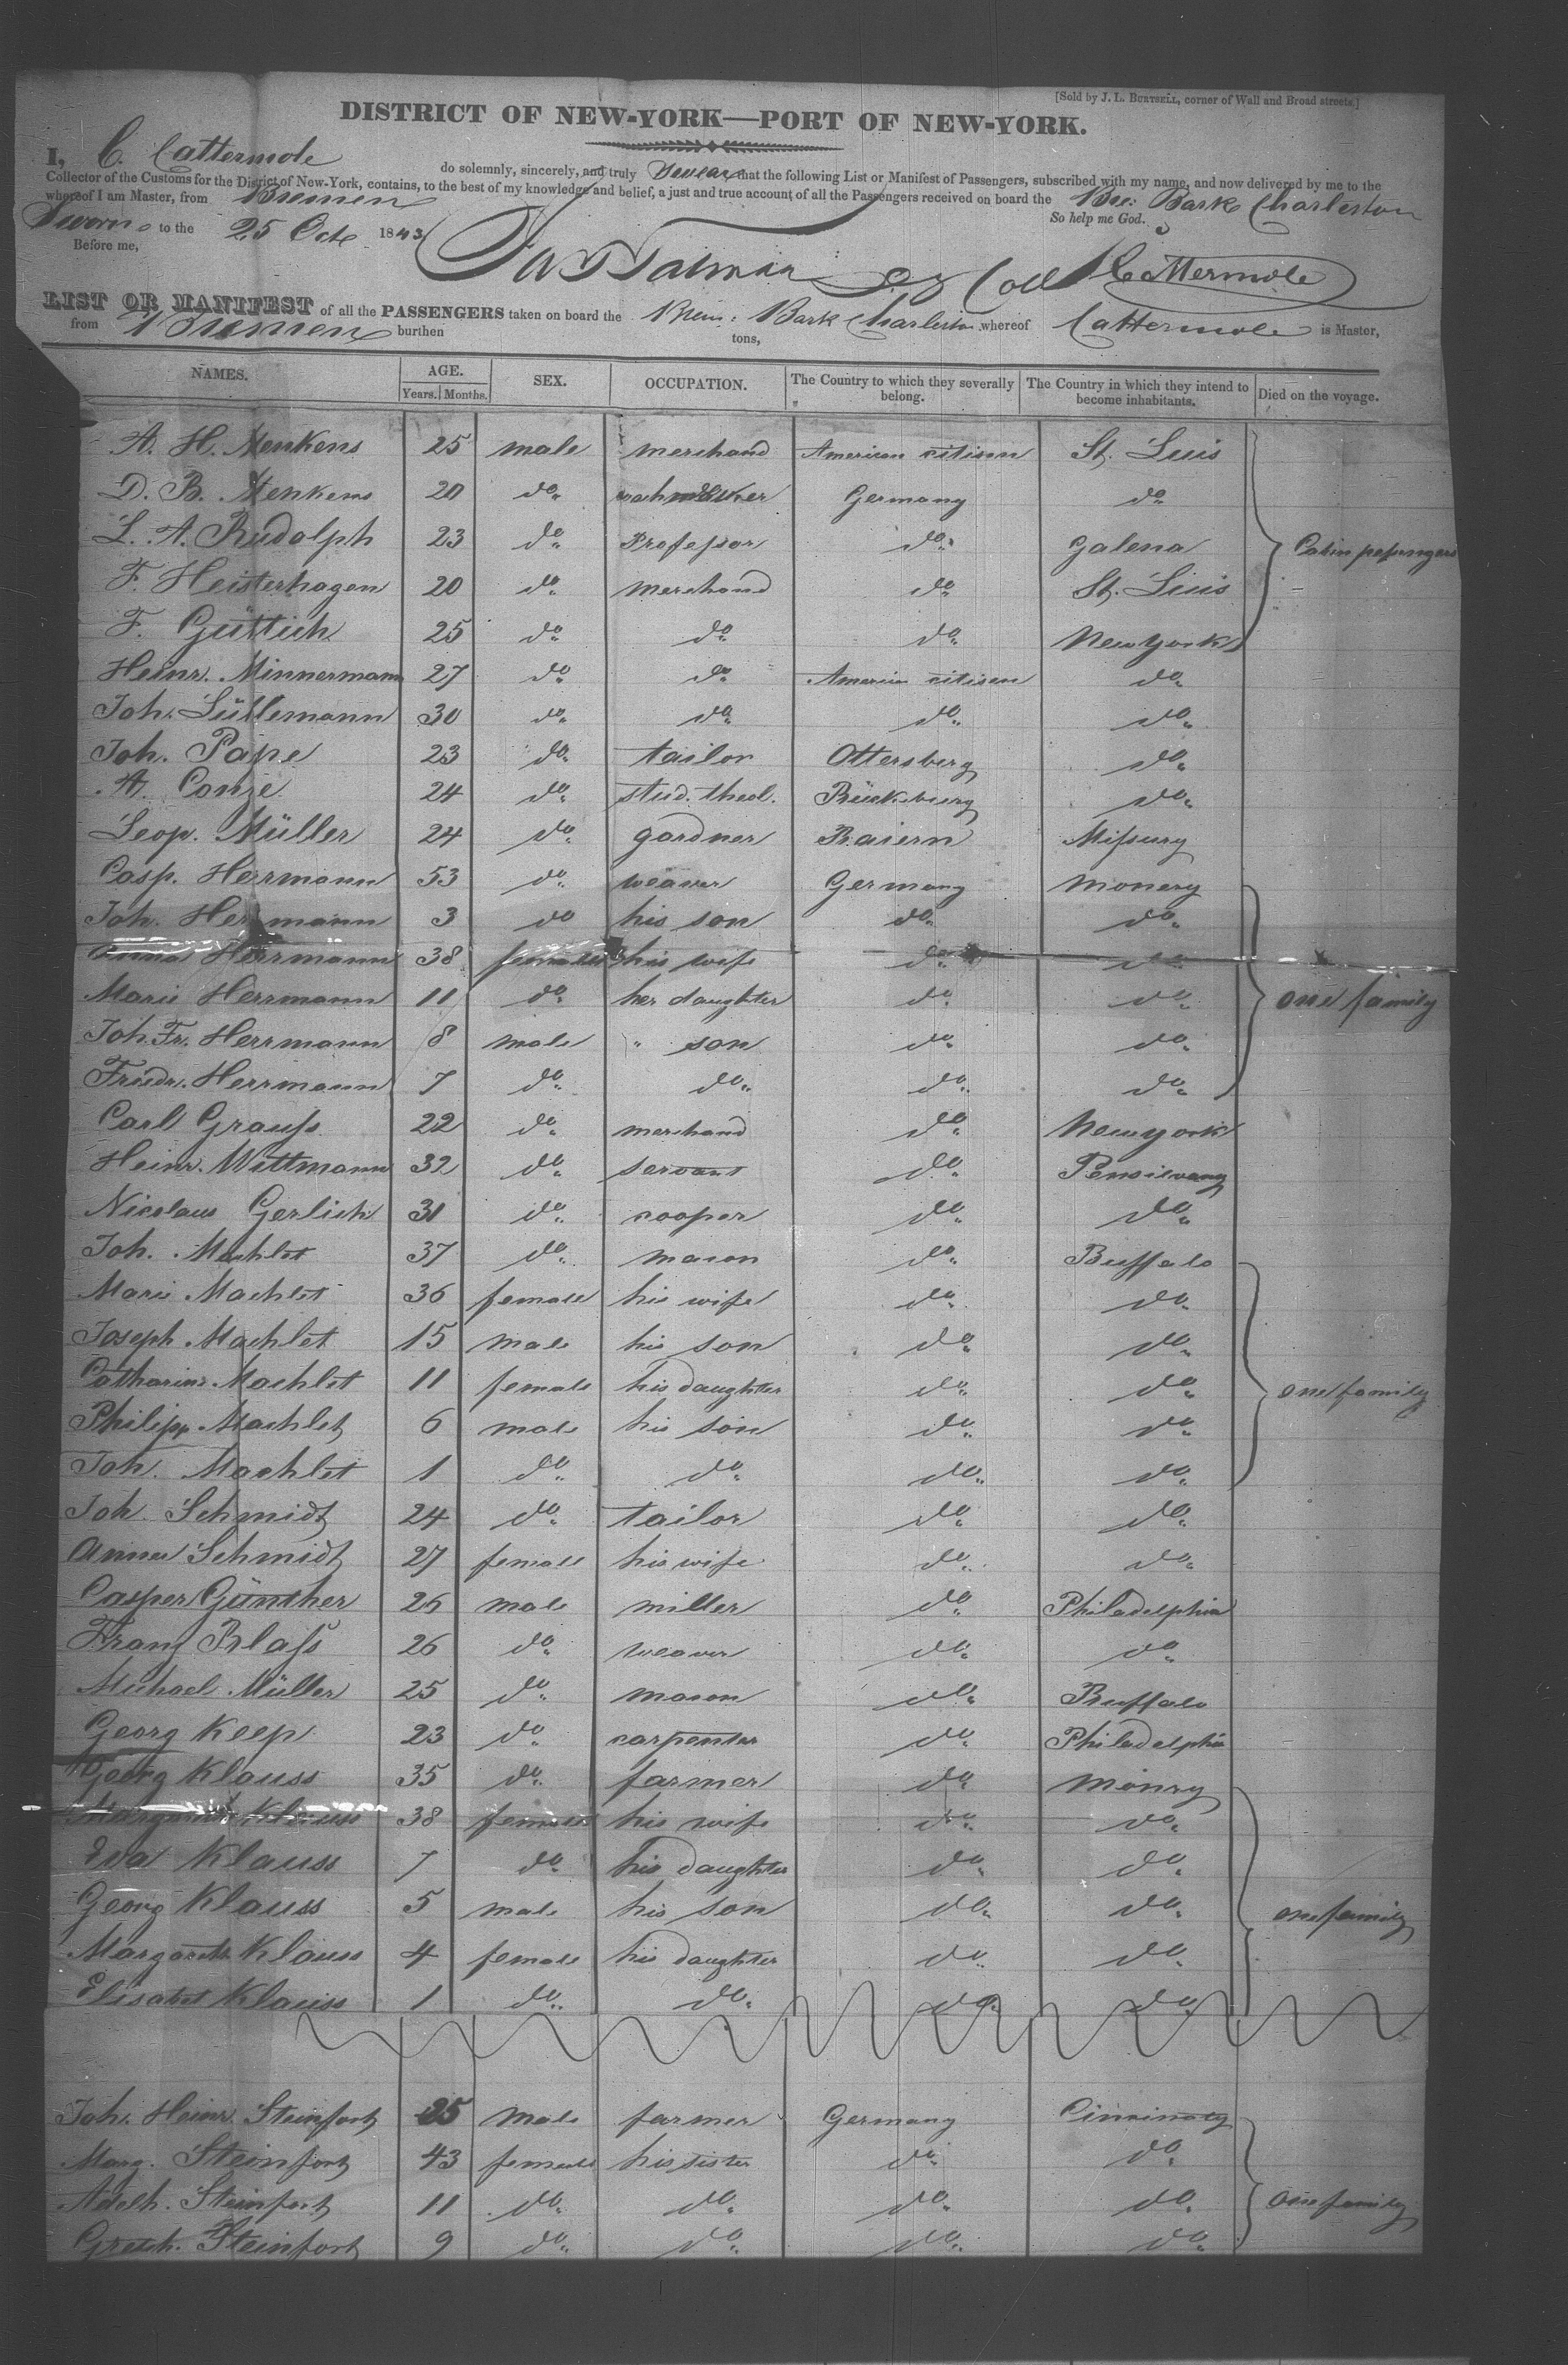 [Sold by J. L. BURTSELL, corner of Wall and Broad streets.]
DISTRICT OF NEW-YORK—PORT OF NEW-YORK.
I, C. Cattermole do solemnly, sincerely, and truly swear that the following List or Manifest of Passengers, subscribed with my name, and now delivered by me to the
Collector of the Customs for the District of New-York, contains, to the best of my knowledge and belief, a just and true account of all the Passengers received on board the Bre: Bark Charleston
whereof I am Master, from Bremen So help me God.
Sworn to the 25 Octo 1843
Before me, Cattermole
LIST OR MANIFEST of all the PASSENGERS taken on board the Brem: Bark Charleston whereof Cattermole is Master,
from Bremen burthen tons,
NAMES. AGE. Years. Months. SEX. OCCUPATION. The Country to which they severally belong. The Country in which they intend to become inhabitants. Died on the voyage.
A. H. Menkens 25 male merchand American citisen St. Luis
D. B. Menkens 20 do Germany do
L. A. Rudolph 23 do Professor do Galena Cabin passengers
F. Heisterhagen 20 do merchand do St. Luis
F. Güttich 25 do do do New York
Heinr. Minnermann 27 do do American citisen do
Joh. Lüllemann 30 do do do do
Joh. Pape 23 do tailor Ottersberg do
A. Conze 24 do stud. theol. Bückeburg do
Leop. Müller 24 do gardner Baiern Missury
Casp. Herrmann 53 do weaver Germany Monery
Joh. Herrmann 3 do his son do do
Anna Herrmann 38 female his wife do do
Marie Herrmann 11 do her daughter do do one family
Joh. Fr. Herrmann 8 male " son do do
Friedr. Herrmann 7 do do do do
Carl Grauss 22 do merchand do New york
Heinr. Wittmann 32 do servant do Pensilvany
Nicolaus Gerlich 31 do cooper do do
Joh. Machlet 37 do mason do Buffalo
Marie Machlet 36 female his wife do do
Joseph Machlet 15 male his son do do
Catharine Machlet 11 female his daughter do do one family
Philipp Machlet 6 male his son do do
Joh. Machlet 1 do do do do
Joh Schmidt 24 do tailor do do
Anna Schmidt 27 female his wife do do
Casper Günther 26 male miller do Philadelphia
Franz Blass 26 do weaver do do
Michael Müller 25 do mason do Buffalo
Georg Keep 23 do carpenter do Philadelphia
Georg Klauss 35 do farmer do Monry
Klauss 38 female his wife do do
Eva Klauss 7 do his daughter do do
Georg Klauss 5 male his son do do one family
Margareth Klauss 4 female his daughter do do
Elisabet Klauss 1 do do do do
Joh. Heinr. Steinfort 35 male farmer Germany Cinsinaty
Marg. Steinfort 43 female his sister do do
Adelh. Steinfort 11 do do do do one family
Gretch. Steinfort 9 do do do do